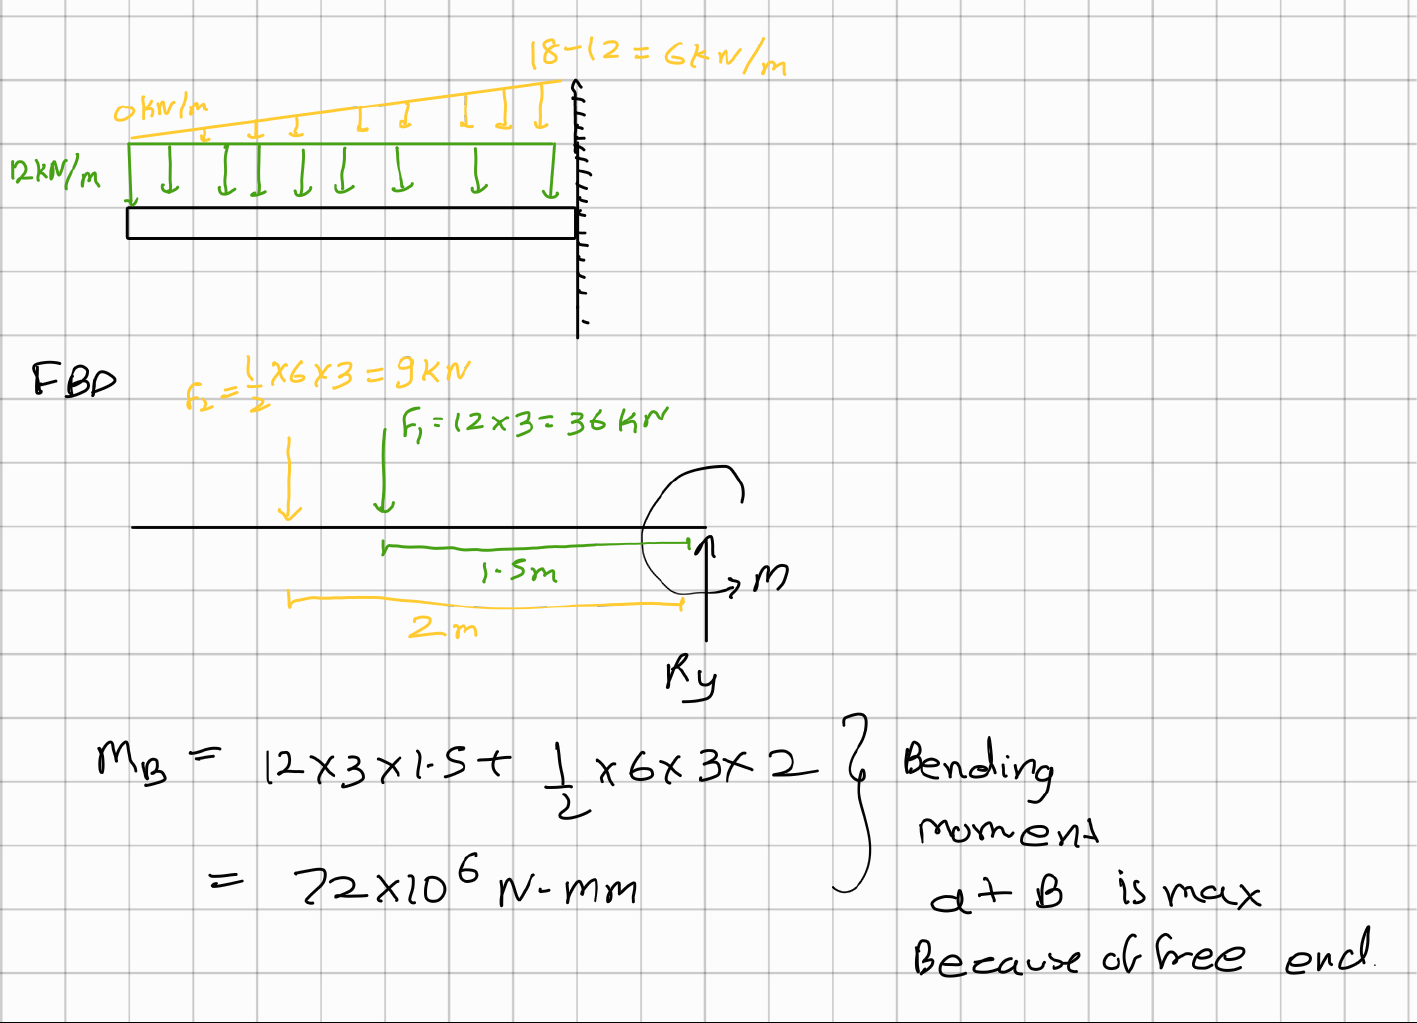 18-12 = 6kN/m
0kN/m
12kN/m
FBD
F₂ = 1/2 ×6×3 = 9kN
F₁ = 12×3 = 36 kN
1.5m
M
2m
Ry
MB = 12×3×1.5+ 1/2 ×6×3×2
= 72×10⁶ N-mm
Bending
moment
at B is max
Because of free end.